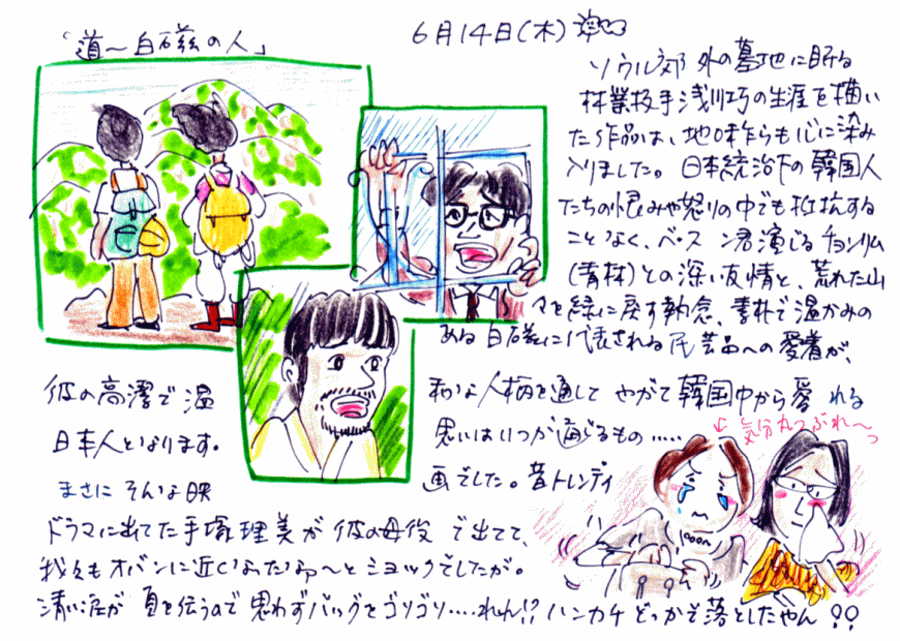 「道～白磁の人」
6月14日(木)
ソウル郊外の墓地に眠る
林業技手浅川巧の生涯を描い
た作品は、地味乍らも心に染み
入りました。日本統治下の韓国人
たちの恨みや怒りの中でも抵抗する
ことなく、ペ・ス ン君演じるチョンリム
(青林)との深い友情と、荒れた山
々を緑に戻す執念、素朴で温かみの
ある白磁に代表される民芸品への愛着が、
彼の高潔で温 和な人柄を通して やがて韓国中から愛 れる
日本人となります。 思いはいつか通じるもの.....
まさに そんな映 画でした。昔トレンディ
ドラマに出てた手塚理美が彼の母役 で出てて、
我々もオバンに近くなったなあ～とショックでしたが。
清い涙が 頁を伝うので思わずバッグをゴソゴソ....れれん!? ハンカチ どっかぞ落としたやん !?
↓気分丸つぶれ～っ